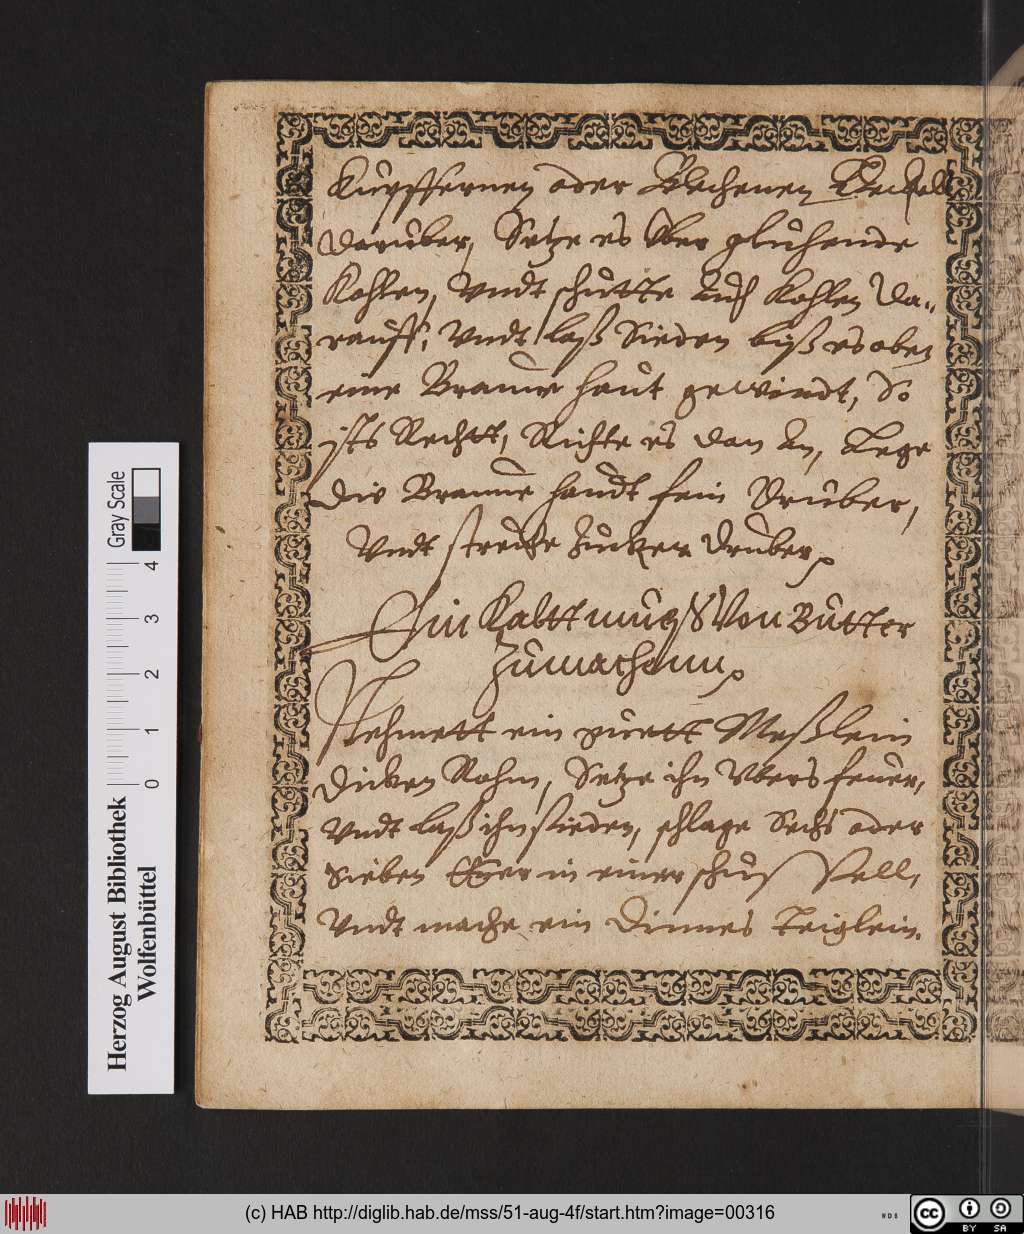 Küpffernen oder Blechenen Deckell
darüber, Setze es über gluhende
Kohlen, Vndt schütte auch Kohlen da„
rauff, Vndt laß Sieden biß es oben
eine Braune haut gewindt, So
ists Rechtt, Richte es dan an, Lege
die Braune haudt fein drüber,
Vndt streüe Zucker drüber
Ein Kaltt muß Von Bütter
zumachenn
Nehmett ein guett Meßlein
dicken Rohm, Setze ihn Vbers feüer,
Vndt laß ihn sieden, schlage Sechs oder
Sieben Eÿer in einer schüssell,
Vndt mache ein dinnes Teiglein.
Gray Scale
0 1 2 3 4
Herzog August Bibliothek
Wolfenbüttel
(c) HAB http://diglib.hab.de/mss/51-aug-4f/start.htm?image=00316
cc BY SA